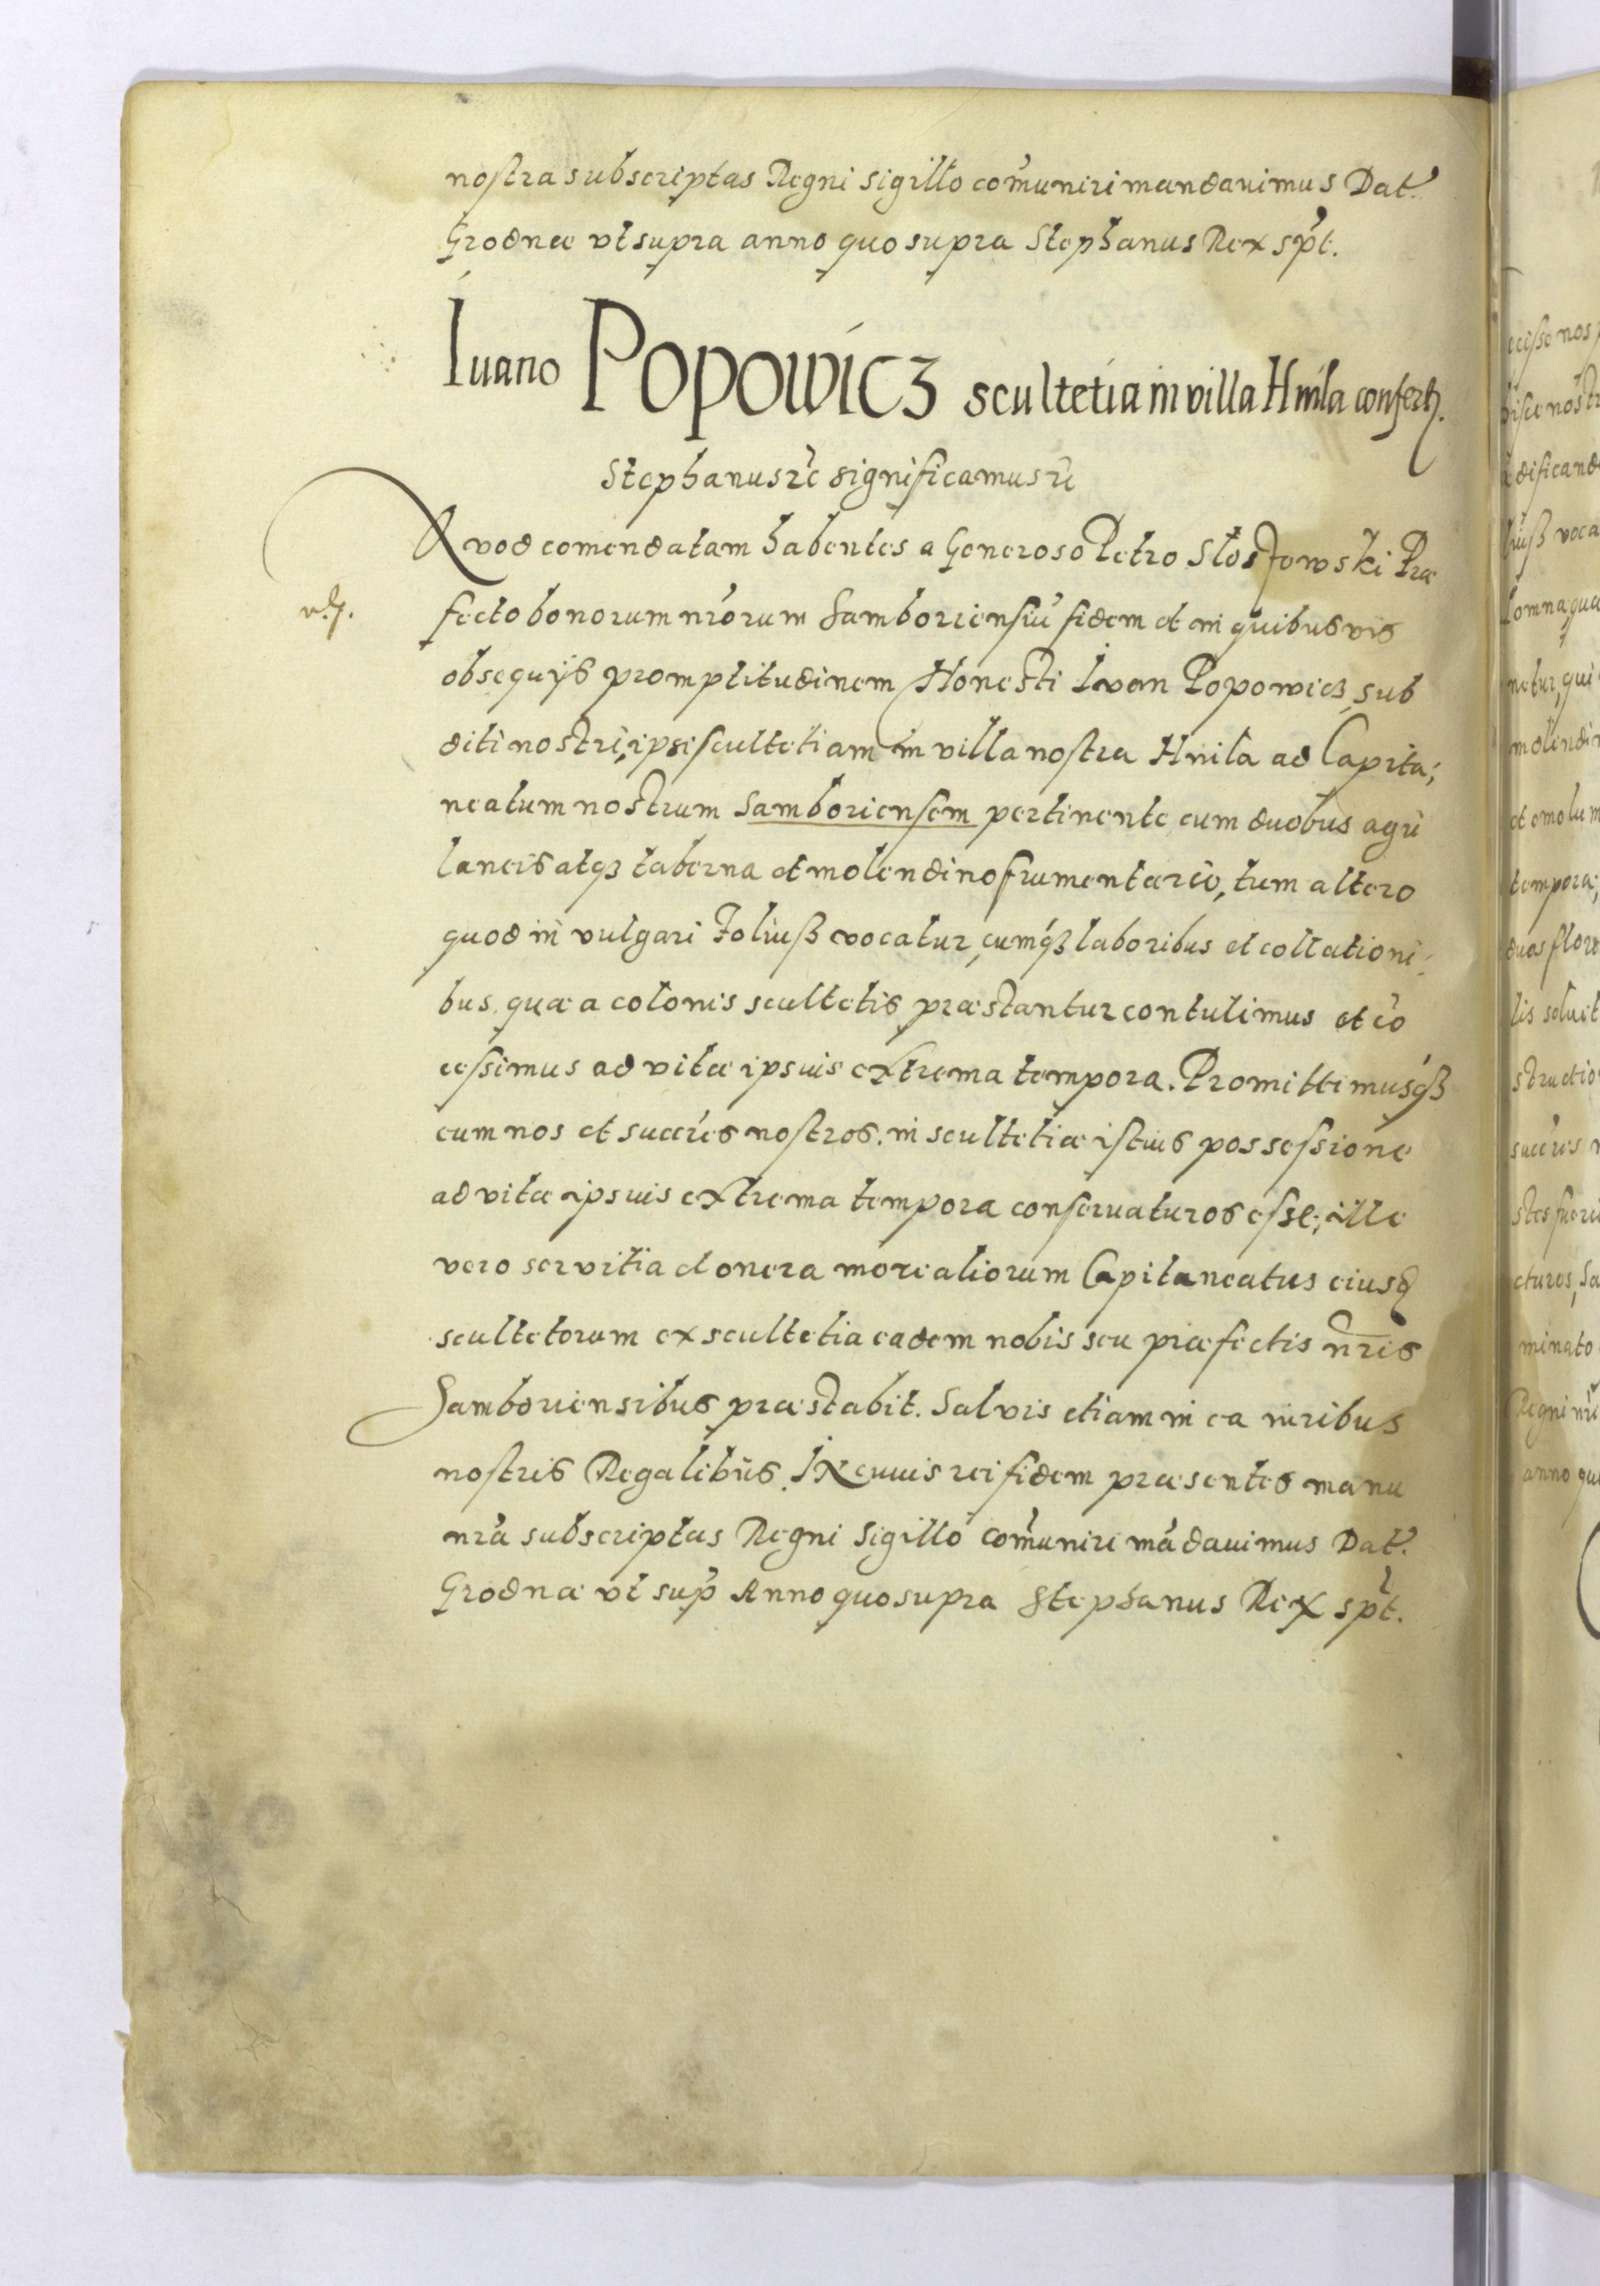 nostra subscriptas Regni sigillo com̃uniri mandauimus Dat.
Grodnæ vt supra anno quo supra Stephanus Rex sp̃t.
Iuano Popowicz scultetia in villa Hnila confertʒ.
Stephanus rc̃ significamus rc̃
Quod comendatam habentes a Generoso Petro Słostowski Præ
fecto bonorum nr̃orum Samboriensiũ fidem et in quibusvis
obsequijs promptitudinem Honesti Ivan Popowicz sub
diti nostri, ipsi scultetiam in villa nostra Hnila ad Capita,
neatum nostrum Samboriensem pertinente cum duobus agri
laneis atqʒ taberna et molendino frumentario, tum altero
quod in vulgari Foliusz vocatur, cumqʒ laboribus et collationi,
bus, quæ a colonis scultetis præstantur contulimus et cõ
cessimus ad vitæ ipsius extrema tempora. Promittimusqʒ
eum nos et succr̃es nostros in scultetiæ istius possessione
ad vitæ ipsius extrema tempora conseruaturos esse, ille
vero servitia et onera more aliorum Capitaneatus eiusd
scultetorum ex scultetia eadem nobis seu præfectis nr̃is
Samboriensibus præstabit. Salvis etiam in ea iuribus
nostris Regalibus. IN cuius rei fidem præsentes manu
nr̃a subscriptas Regni Sigillo com̃uniri mãdauimus Dat.
Grodnæ vt sup̃ Anno quo supra Stephanus Rex sp̃t.